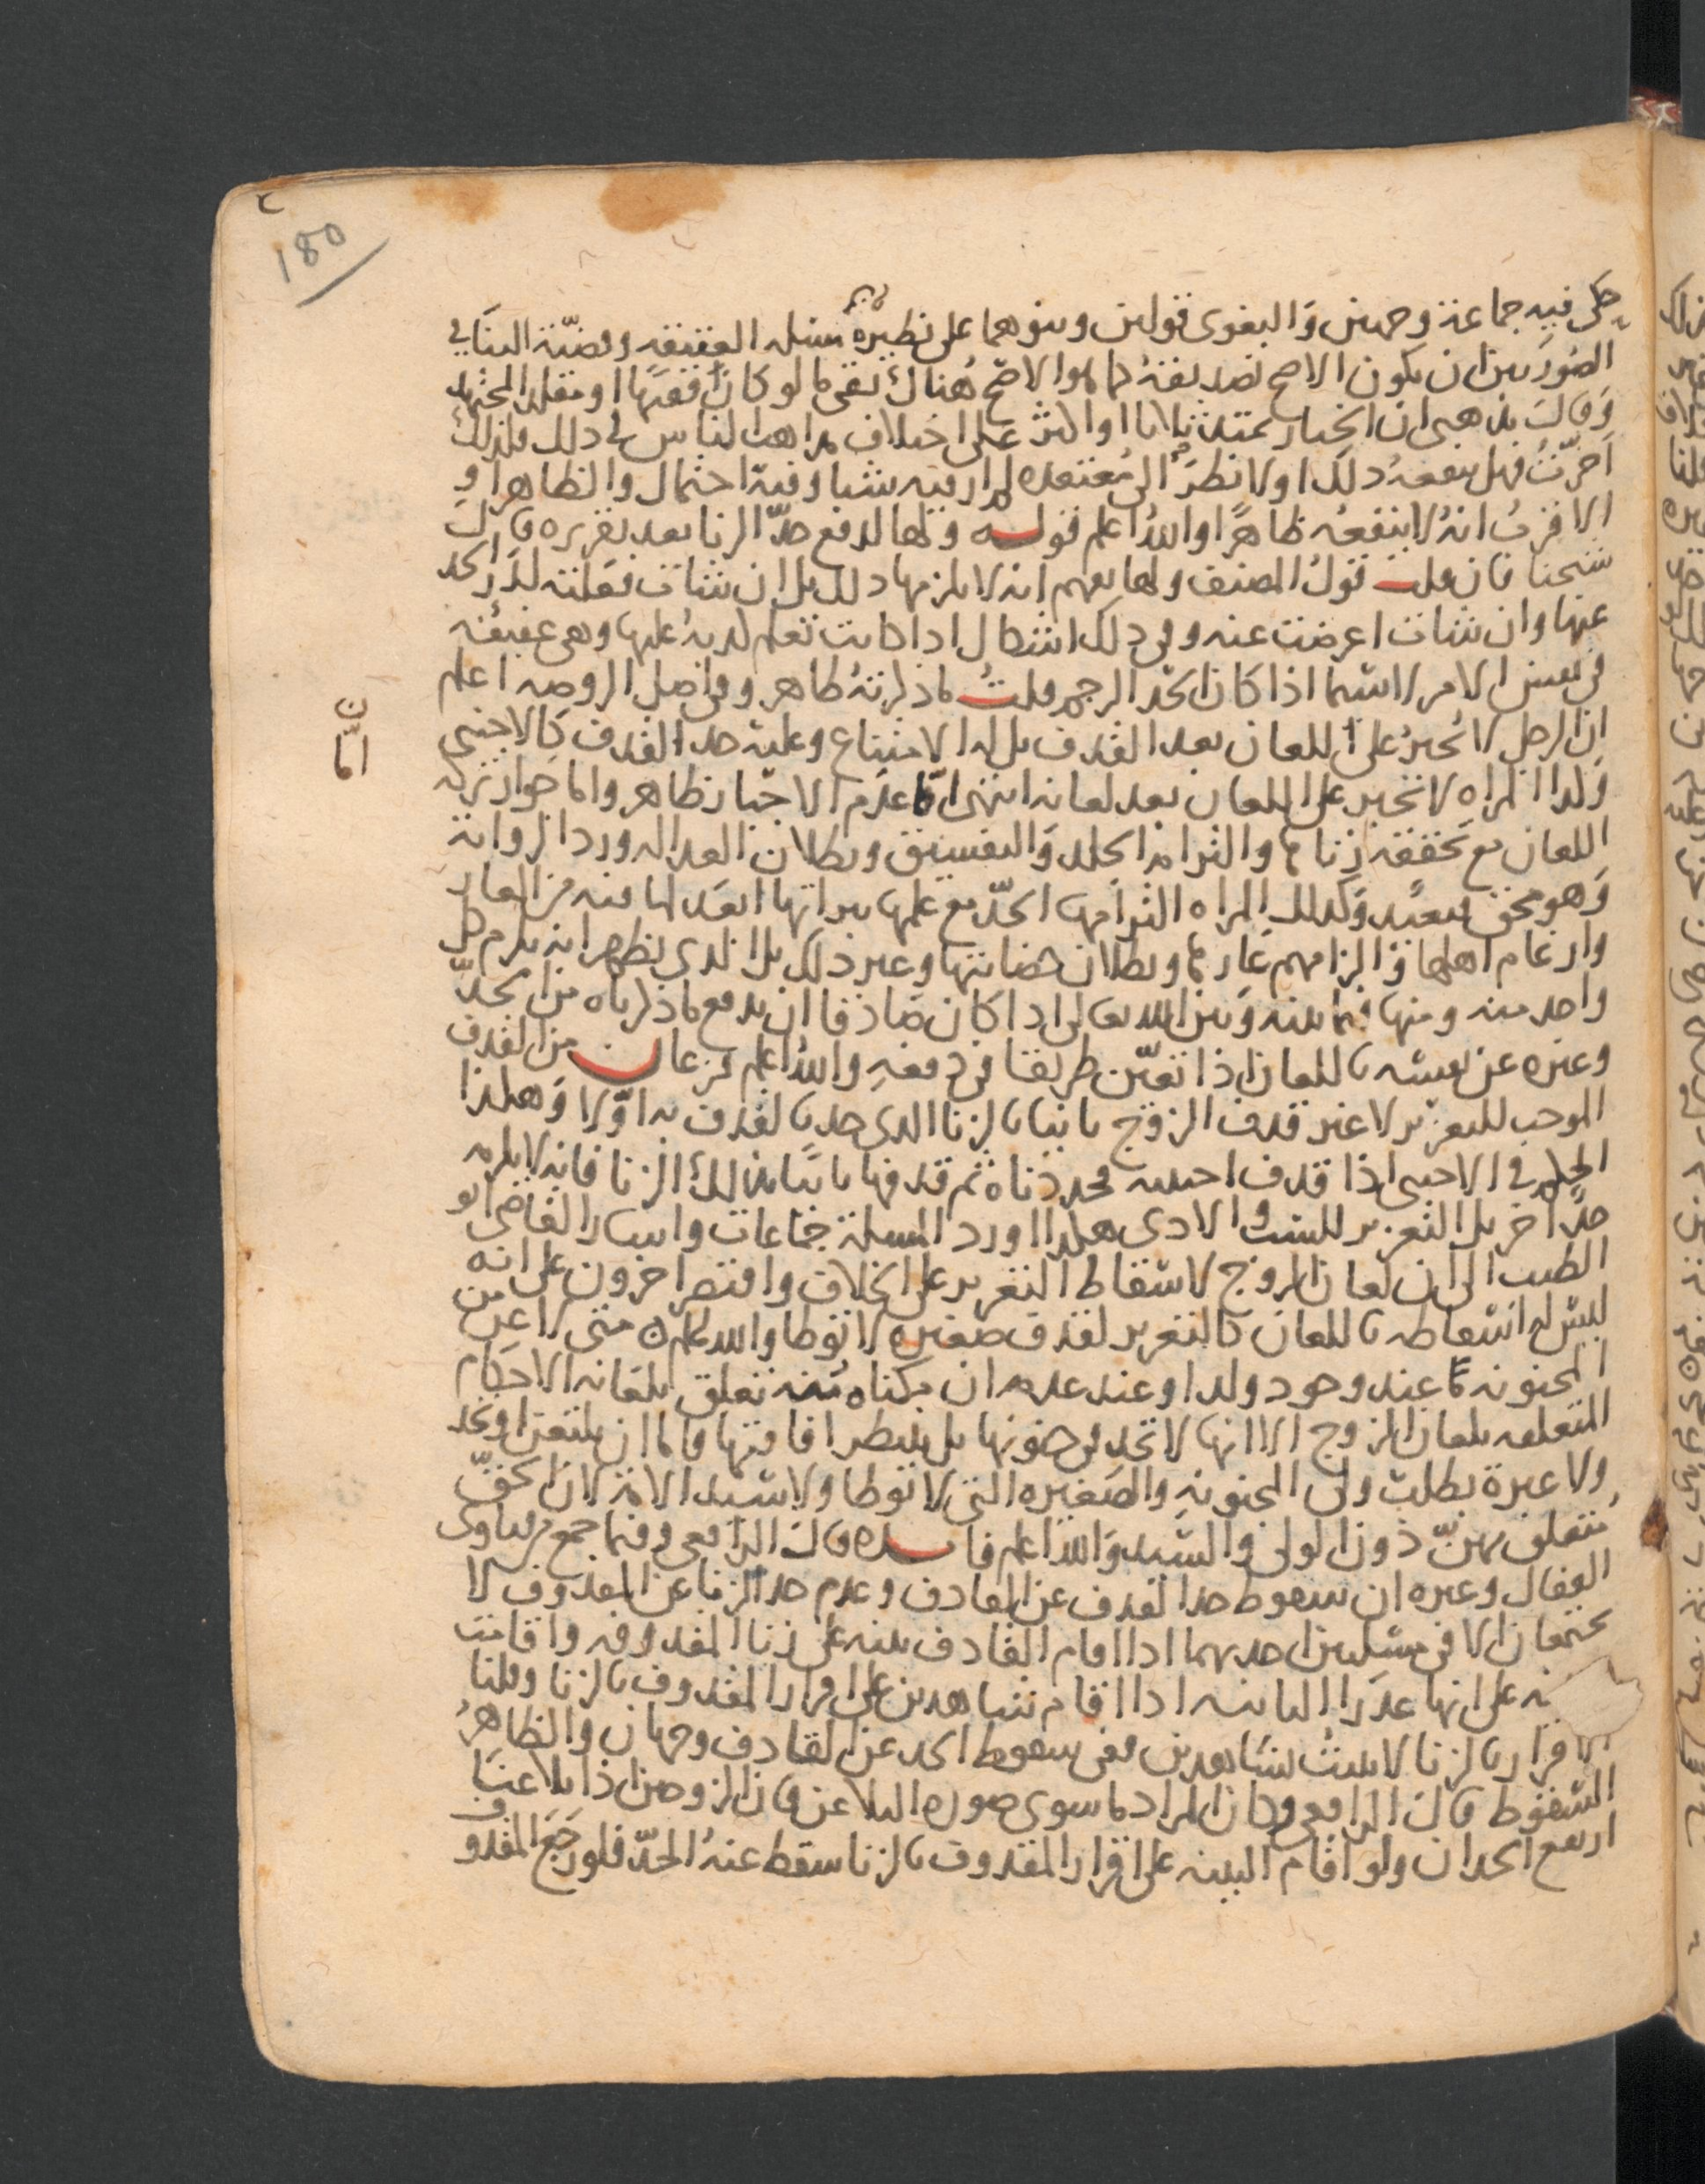 180
حكى فيه جماعة وجهين والبغوى قولين وبنوهما على نظيره من مسئله العقيقه وقضيّة البنا فى
الصورتين ان يكون الاصح تصديقه كما هوا الاصح هناك بقى ما لو كان فقيهًا او مقلدا لمجتهد
وقال مذهبى ان الخيار يمتد ثلاثا او اكثر على اختلاف مذاهب الناس فى ذلك فلذلك
اخرّت فهل ينفعه ذلك اولا نظرا الى معتقده لم ار فيه شيا وفيه احتمال والظاهر او
الاقرب انه لا ينفعه ظاهرًا والله اعلم قوله ولها لدفع حدّ الزنا بعد تقريره قال
شيخنا فان قلت قول المصنف ولها يفهم انه لا يلزمها ذلك بل ان شات فعلته لدر الحد
عنها وان شات اعرضت عنه وفى ذلك اشكال اذا كانت تعلم كذبه عليها وهى عفيفه
فى نفس الامر لا سيما اذا كان الحد الرجم قلت ما ذكرته ظاهر وفى اصل الروضه اعلم
ان الرجل لا يجبر على اللعان بعد القذف بل له الامتناع وعليه حد القذف كالاجنبى
وكذا المراه لا تجبر على اللعان بعد لعانه انتهى امّا عدم الاجبار فظاهر واما جواز تركه
ن
امّا
اللعان مع تحققه زناها والتزامه الجلد والتفسيق وبطلان العداله ورد الرواية
وهو محق فبعيد وكذلك المراه التزامها الحدّ مع علمها ببراتها ابعد لما فيه من العار
وارغام اهلها والزامهم عارها وبطلان حضانتها وغير ذلك بل الذى يظهر انه يلزم كل
واحد منه ومنها فيما بينه وبين الله تعالى اذا كان صادقا ان يدفع ما ذكرناه من الحدّ
وغيره عن نفسه باللعان اذا تعيّن طريقا فى دفعه والله اعلم فرعان من القذف
الموجب للتعزير لا غير قذف الزوج ثانيا بالزنا الذى حد بالقذف به اوّلا وهكذا
الحكم فى الاجنبى اذا قذف اجنبيه فحددناه ثم قذفها ثانيًا بذلك الزنا فانه لا يلزمه
حدّ اخر بل التعزير للسب والاذى هكذا اورد المسئلة جماعات واشار القاضى ابو
الطيب الى ان لعان الزوج لاسقاط التعزير على الخلاف واقتصر اخرون على انه
ليس له اسقاطه باللعان كالتعزير لقذف صغيره لا توطا والله اعلم ن متى لاعن من
المجنونه كاعند وجود ولد او عند عدمه ان مكناه منه تعلق بلعانه الاحكام
المتعلقه بلعان الزوج الا انها لا تحد فى جنونها بل ينتظر افاقتها فاما ان يلتعن او تحد
ولا عبرة بطلب ولى المجنونه والصغيره التى لا توطا ولا سيد الامة لان الحق
يتعلق بهنّ دون الولى والسيد والله اعلم فائده قال الرافعى وفيما جمع من فتاوى
القفال وغيره ان سقوط حد القذف عن القاذف وعدم حد الزنا عن المقذوف لا
يجتمعان الا فى مسئلتين احديهما اذا اقام القاذف بينه على زنا المقذوفه واقامت
نه على انها عذرا الثانيه اذا اقام شاهدين على اقرار المقذوف بالزنا وقلنا
الاقرار بالزنا لا يثبت بشاهدين ففى سقوط الحد عن القاذف وجهان والظاهر
السقوط قال الرافعى وكان المراد ما سوى صوره التلاعن فان الزوجين اذا تلاعنا
ارتفع الحدان ولو اقام البينه على اقرار المقذوف بالزنا سقط عنه الحدّ فلو رجع المقذوف